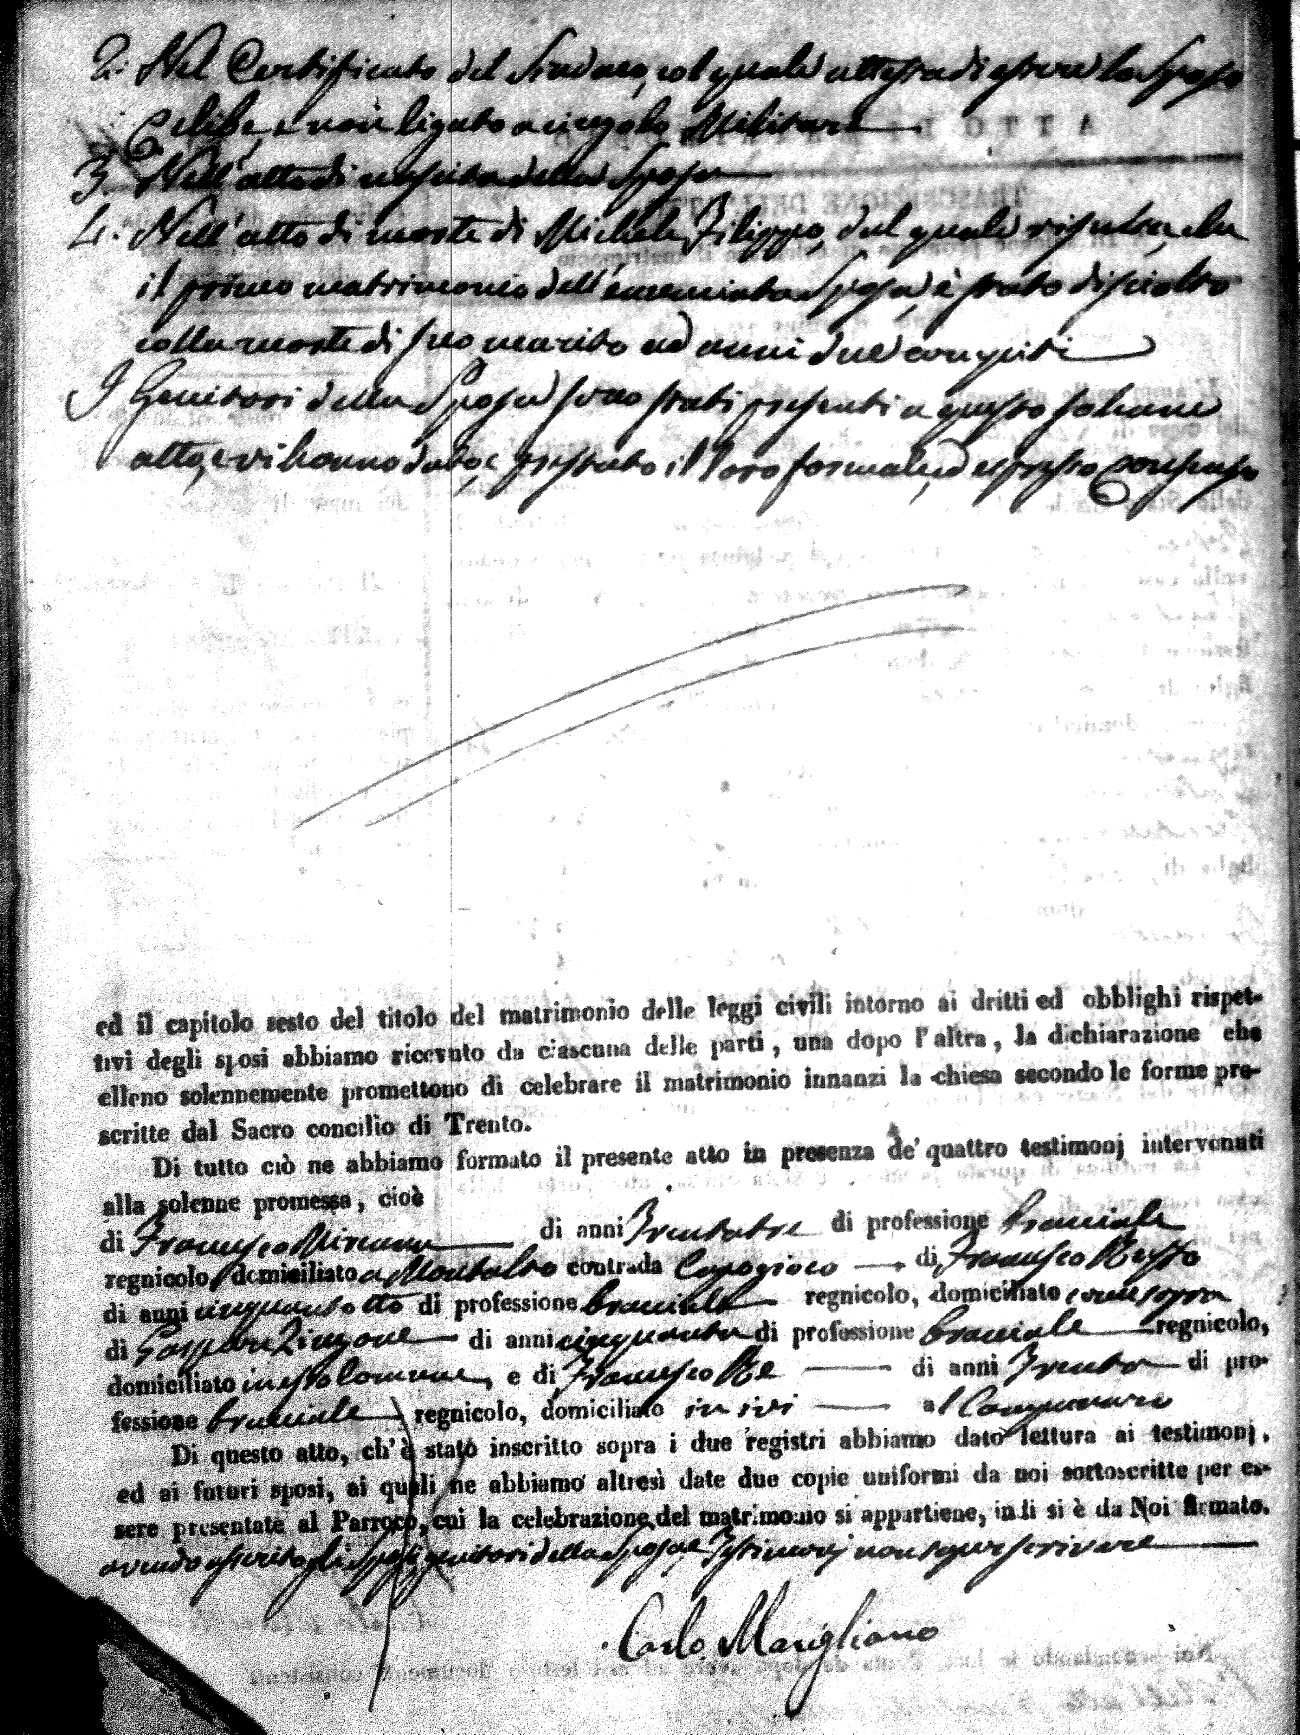 2. Nel Certificato del Sindaco, col quale attesta di essere lo Sposo
Celibe, e non ligato a vincolo Militare
3. Nell'atto di nascita della Sposa
4. Nell'atto di morte di Michele Filippo, dal quale risulta, che
il primo matrimonio dell'enunciata Sposa, è stato disciolto
colla morte di suo marito ad anni due compiti
I Genitori della Sposa sono stati presenti a questo solenne
atto, e vi hanno dato, e prestato il loro formale, ed espresso consenso
ed il capitolo sesto del titolo del matrimonio delle leggi civili intorno ai dritti ed obblighi rispet-
tivi degli sposi abbiamo ricevuto da ciascuna delle parti, una dopo l'altra, la dichiarazione che
elleno solennemente promettono di celebrare il matrimonio innanzi la chiesa secondo le forme pre-
scritte dal Sacro concilio di Trento.
Di tutto ciò ne abbiamo formato il presente atto in presenza de' quattro testimonj intervenuti
alla solenne promessa, cioè
di Francesco di anni Trentatre di professione bracciale
regnicolo, domiciliato a Montalto contrada di Francesco Russo
di anni cinquantotto di professione bracciale regnicolo, domiciliato come sopra
di Gaspare Zingone di anni cinquanta di professione bracciale regnicolo,
domiciliato in esso Comune, e di Francesco Re di anni Trenta di pro-
fessione bracciale regnicolo, domiciliato in ivi al
Di questo atto, ch'è stato inscritto sopra i due registri abbiamo dato lettura ai testimonj,
ed ai futuri sposi, ai quali ne abbiamo altresì date due copie uniformi da noi sottoscritte per es-
sere presentate al Parroco, cui la celebrazione del matrimonio si appartiene, indi si è da Noi firmato.
avendo asserito gli Sposi, genitori della Sposa, e Testimonj non saper scrivere
Carlo Marigliano